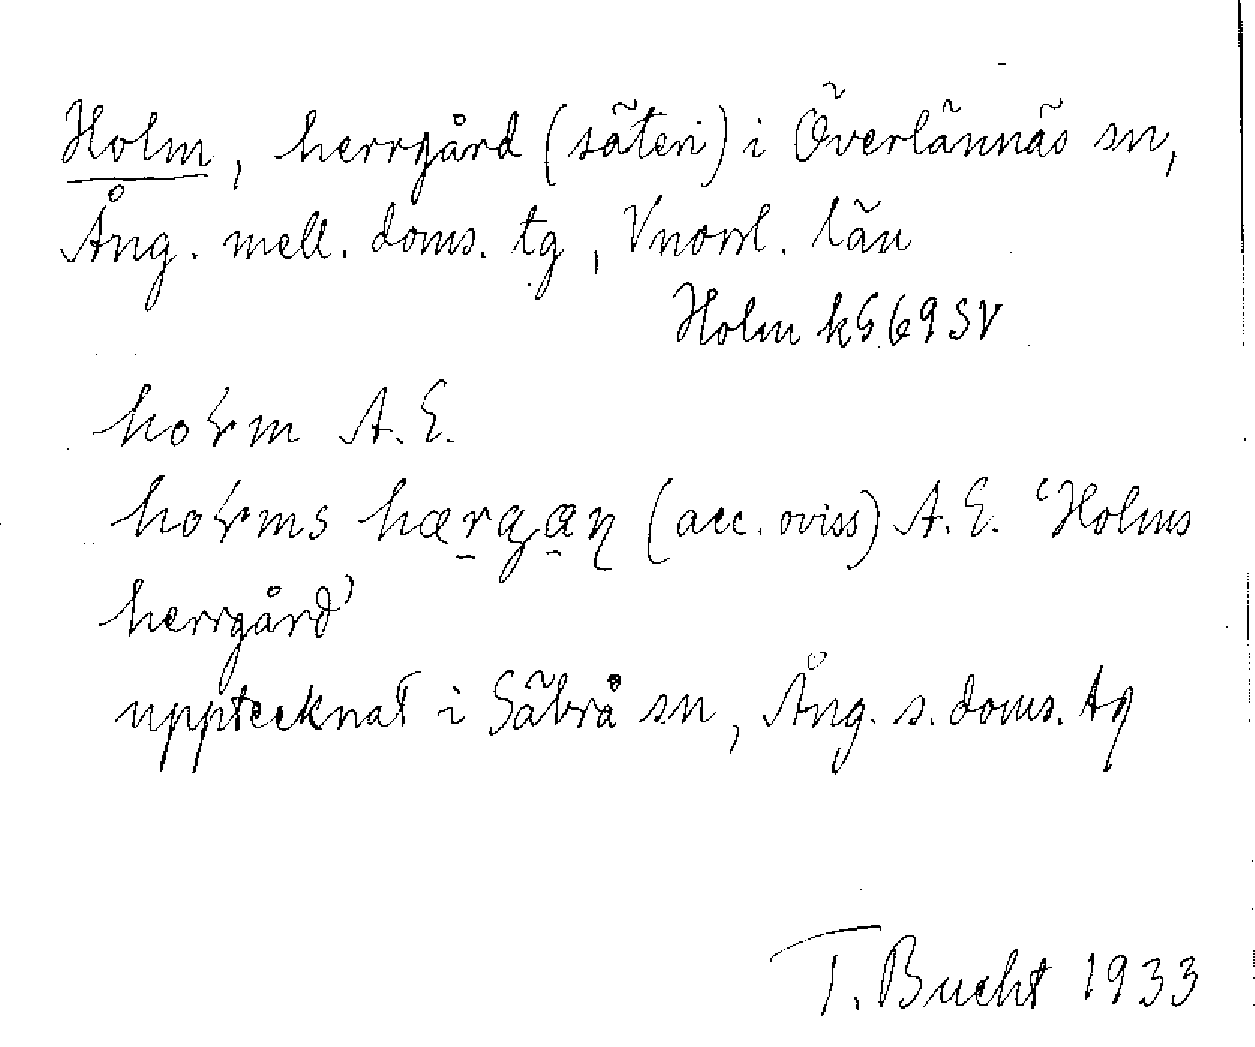 Holm, herrgård (säteri) i Överlännäs sn,
Ång. mell. doms. tg, Vnorrl. län
Holm kG69SV
A.E.
(acc. oviss) A.E. 'Holms
herrgård'
upptecknat i Säbrå sn, Ång. s. doms. tg
T. Bucht 1933